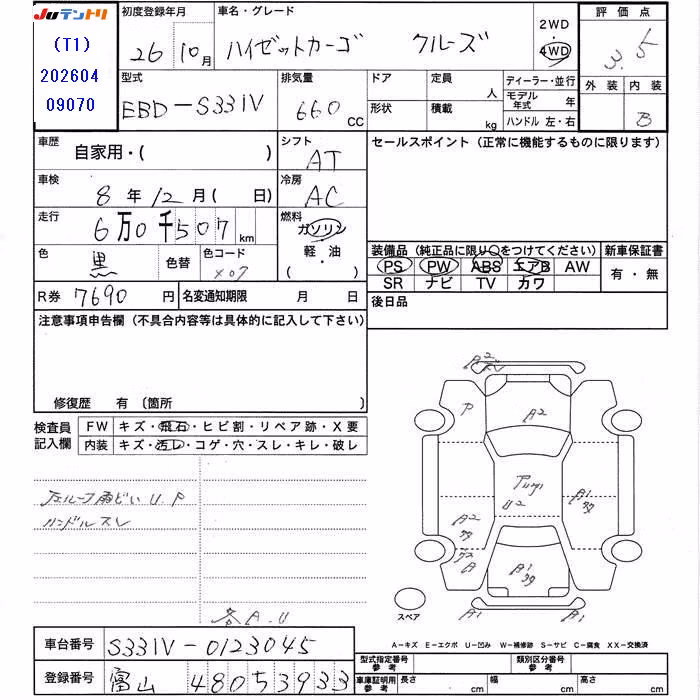 Juテントリ
(T1)
202604
09070
初度登録年月
26 10月
車名・グレード
ハイゼットカーゴ クルーズ
2WD
・
4WD
評価点
3.5
外装 内装
B
型式
EBD-S331V
排気量
660 CC
ドア
形状
定員 人
積載 kg
ディーラー・並行
モデル年式 年
ハンドル 左・右
車歴
自家用・( )
シフト
AT
セールスポイント (正常に機能するものに限ります)
車検
8年12月( 日)
冷房
AC
走行
6万0千507km
燃料
ガソリン
軽・油
・( )
色
黒
色替
色コード
X07
装備品 (純正品に限り○をつけてください)
新車保証書
PS PW ABS エアB AW
SR ナビ TV カワ
有・無
R券 7690円
名変通知期限 月 日
後日品
注意事項申告欄 (不具合内容等は具体的に記入して下さい)
修復歴 有 〔箇所 〕
検査員
記入欄
FW キズ・飛石・ヒビ割・リペア跡・X要
内装 キズ・汚レ・コゲ・穴・スレ・キレ・破レ
ハンドルスレ
各A.U
P
A2
U2
A2
A1
A1
A1
A1
スペア
A-キズ E-エクボ U-凹み W-補修跡 S-サビ C-腐食 XX-交換済
車台番号 S331V-0123045
登録番号 富山 480 5 3933
型式指定番号
参考
類別区分番号
参考
車庫証明用
参考
長さ cm 幅 cm 高さ cm